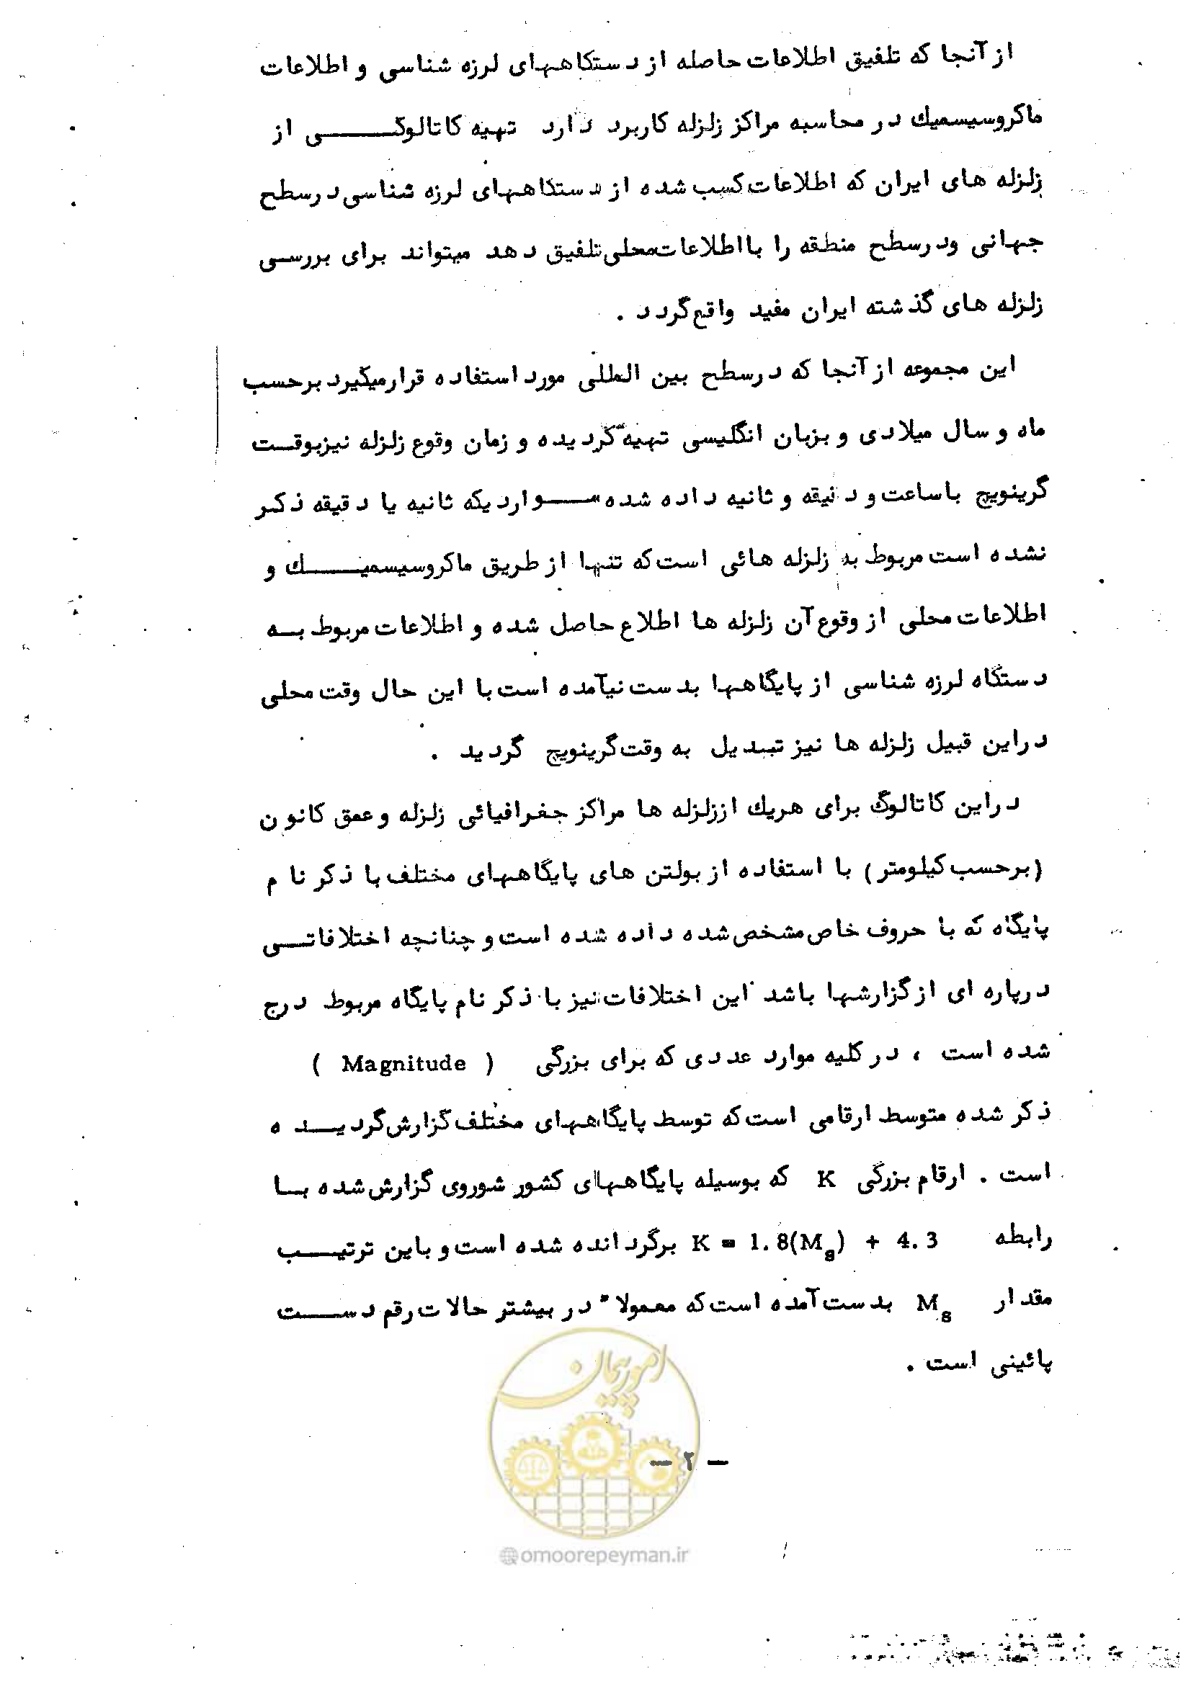 از آنجا که تلفیق اطلاعات حاصله از دستگاههای لرزه شناسی و اطلاعات
ماکروسیسمیك در محاسبه مراکز زلزله کاربرد دارد تهیه کاتالوگی از
زلزله های ایران که اطلاعات کسب شده از دستگاههای لرزه شناسی درسطح
جهانی ودرسطح منطقه را بااطلاعات محلی تلفیق دهد میتواند برای بررسی
زلزله های گذشته ایران مفید واقع گردد .
این مجموعه از آنجا که درسطح بین المللی مورد استفاده قرارمیگیرد برحسب
ماه و سال میلادی و بزبان انگلیسی تهیه گردیده و زمان وقوع زلزله نیزبوقت
گرینویچ باساعت و دقیقه و ثانیه داده شده مواردیکه ثانیه یا دقیقه ذکر
نشده است مربوط به زلزله هائی است که تنها از طریق ماکروسیسمیك و
اطلاعات محلی از وقوع آن زلزله ها اطلاع حاصل شده و اطلاعات مربوط به
دستگاه لرزه شناسی از پایگاهها بدست نیآمده است با این حال وقت محلی
دراین قبیل زلزله ها نیز تبدیل به وقت گرینویچ گردید .
دراین کاتالوگ برای هریك اززلزله ها مراکز جغرافیائی زلزله و عمق کانون
(برحسب کیلومتر) با استفاده از بولتن های پایگاههای مختلف با ذکر نام
پایگاه که با حروف خاص مشخص شده داده شده است و چنانچه اختلافاتی
درپاره ای از گزارشها باشد این اختلافات نیز با ذکر نام پایگاه مربوط درج
شده است ، در کلیه موارد عددی که برای بزرگی ( Magnitude )
ذکر شده متوسط ارقامی است که توسط پایگاههای مختلف گزارش گردیده
است . ارقام بزرگی K که بوسیله پایگاههای کشور شوروی گزارش شده با
رابطه K = 1.8(Ms) + 4.3 برگردانده شده است و باین ترتیب
مقدار Ms بدست آمده است که معمولا" در بیشتر حالات رقم دست
پائینی است .
امور پیمان
— ۲ —
@omoorepeyman.ir